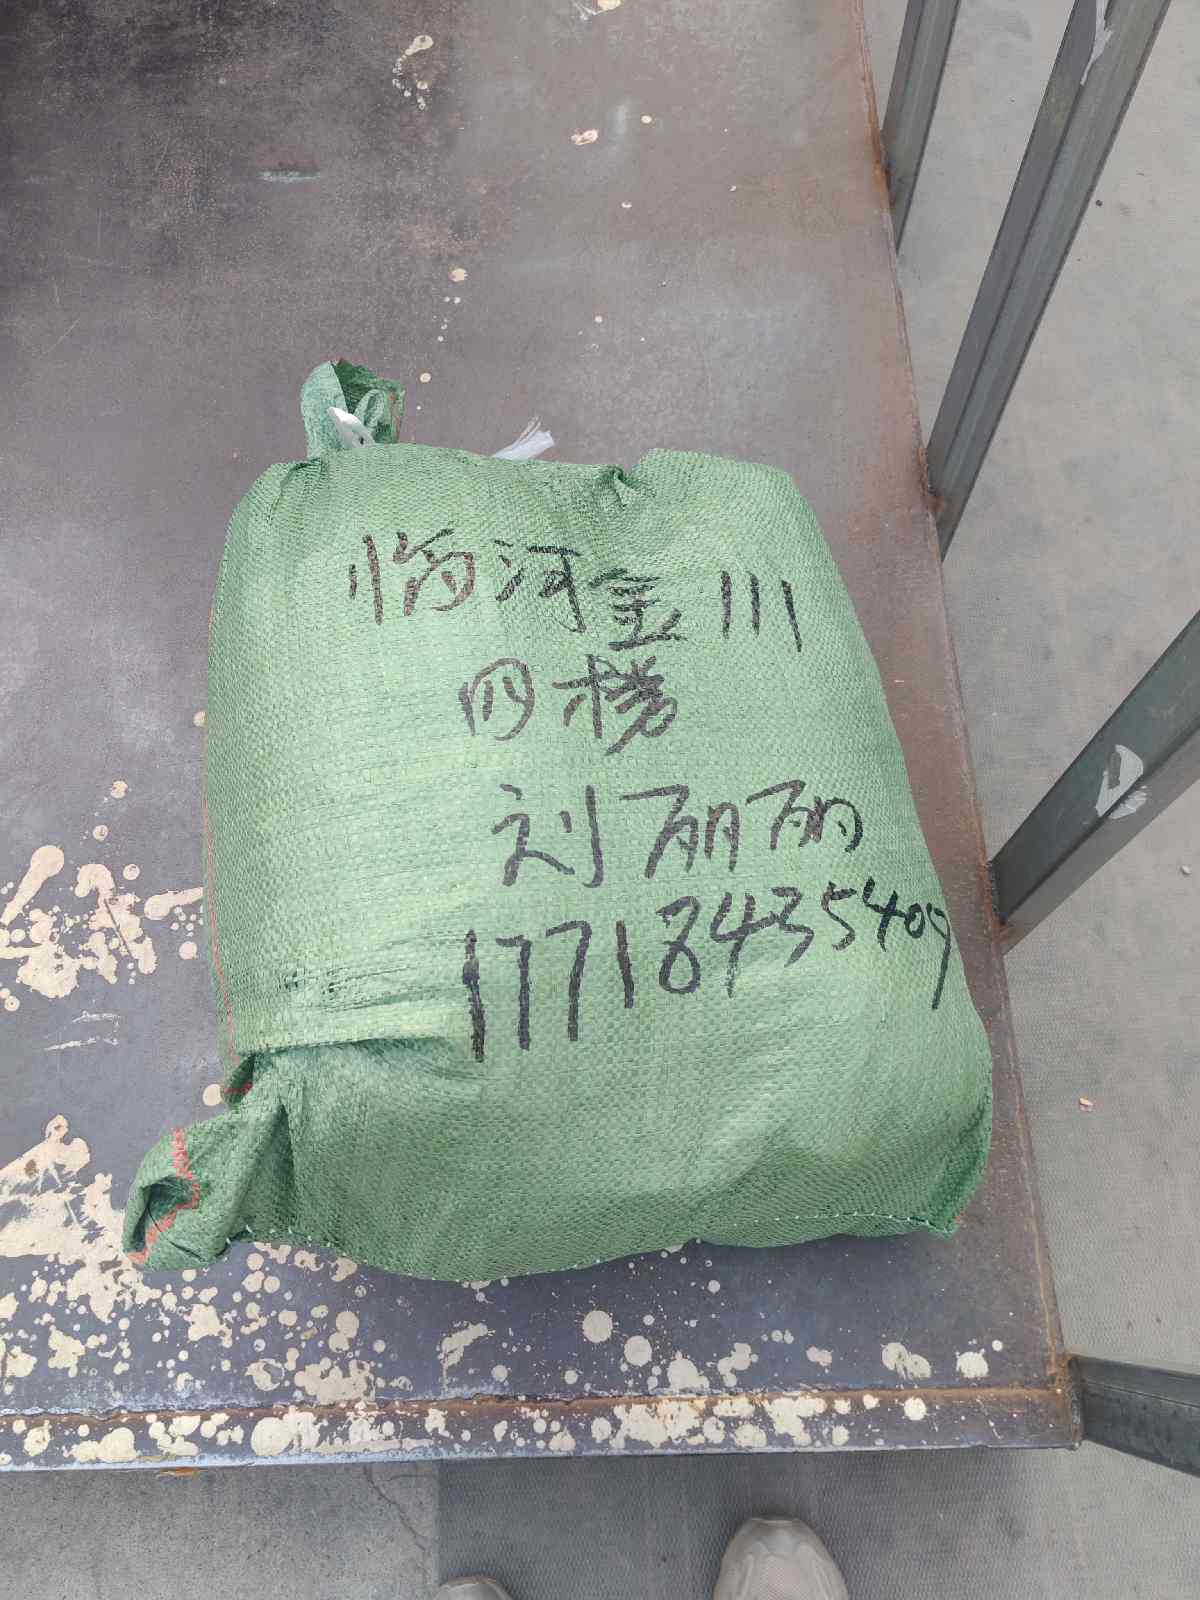 临河金川
四楼
刘丽丽
17718435409